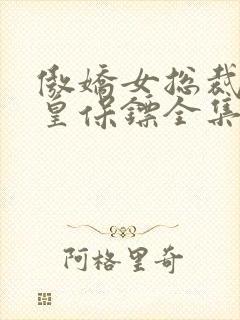 傲嬌女总裁
皇保鏢全集
阿格里奇